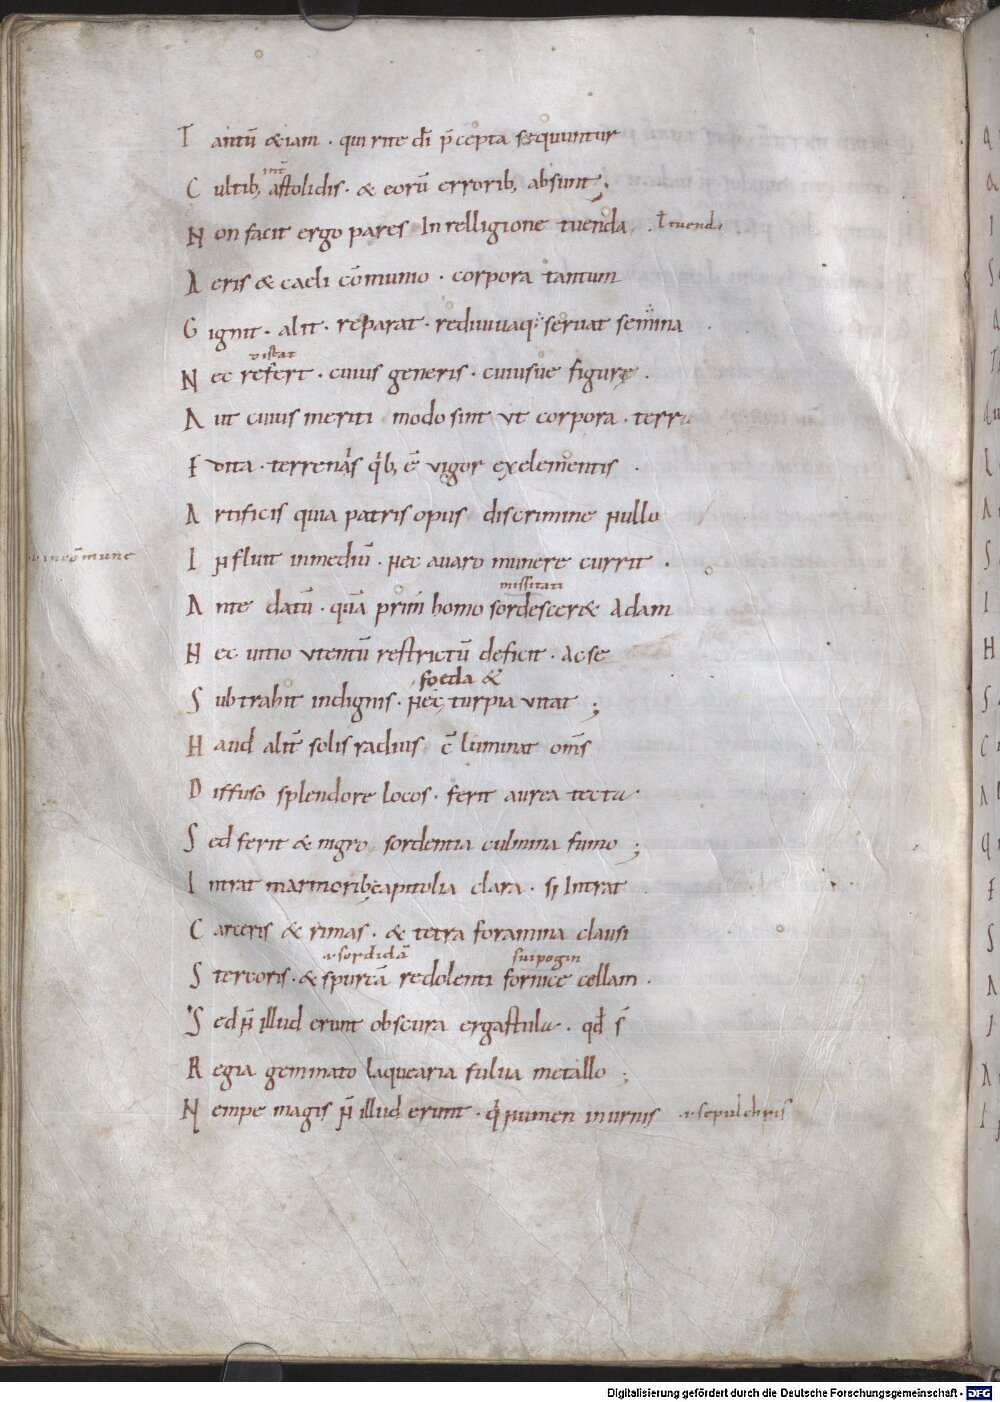 T antū &iam · qui rite dī p̄cepta sequuntur
int̄
C ultib; astolidis · & eorū errorib; absunt;
N on facit ergo pares In relligione tuenda · ł tuendi
A eris & caeli cōmunio · corpora tantum
G ignit · alit · reparat · rediuiuaq; seruat semina
distat
N ec refert · cuius generis · cuiusue figurę ·
A ut cuius meriti modo sint ut corpora · terra
E dita · terrenis qb; ē uigor exelementis ·
A rtificis quia patris opus discrimine nullo
incōmune
I nfluit inmediū · nec auaro munere currit ·
missitari
A nte datū · quā prim' homo sordescer& Adam
H ec uitio utentū restrictū deficit · Acse
foeda &
S ubtrahit indignis · nec turpia uitat ;
H aud alit̄ solis radius c̄ luminat om̄s
D iffuso splendore locos · ferit aurea tecta
S ed ferit & nigro sordentia culmina fumo ;
I ntrat marmorib; capitolia clara · s; Intrat
C arceris & rimas · & tetra foramina clausi
·i·sordidā
S tercoris · & spurcā redolenti fornice cellam ·
S ed n̄ illud erunt obscura ergastula · qd̄ s̄
R egia gemmato laquearia fulua metallo ;
N empe magis n̄ illud erunt · q' numen inurnis ·i·sepulchris
Digitalisierung gefördert durch die Deutsche Forschungsgemeinschaft - DFG